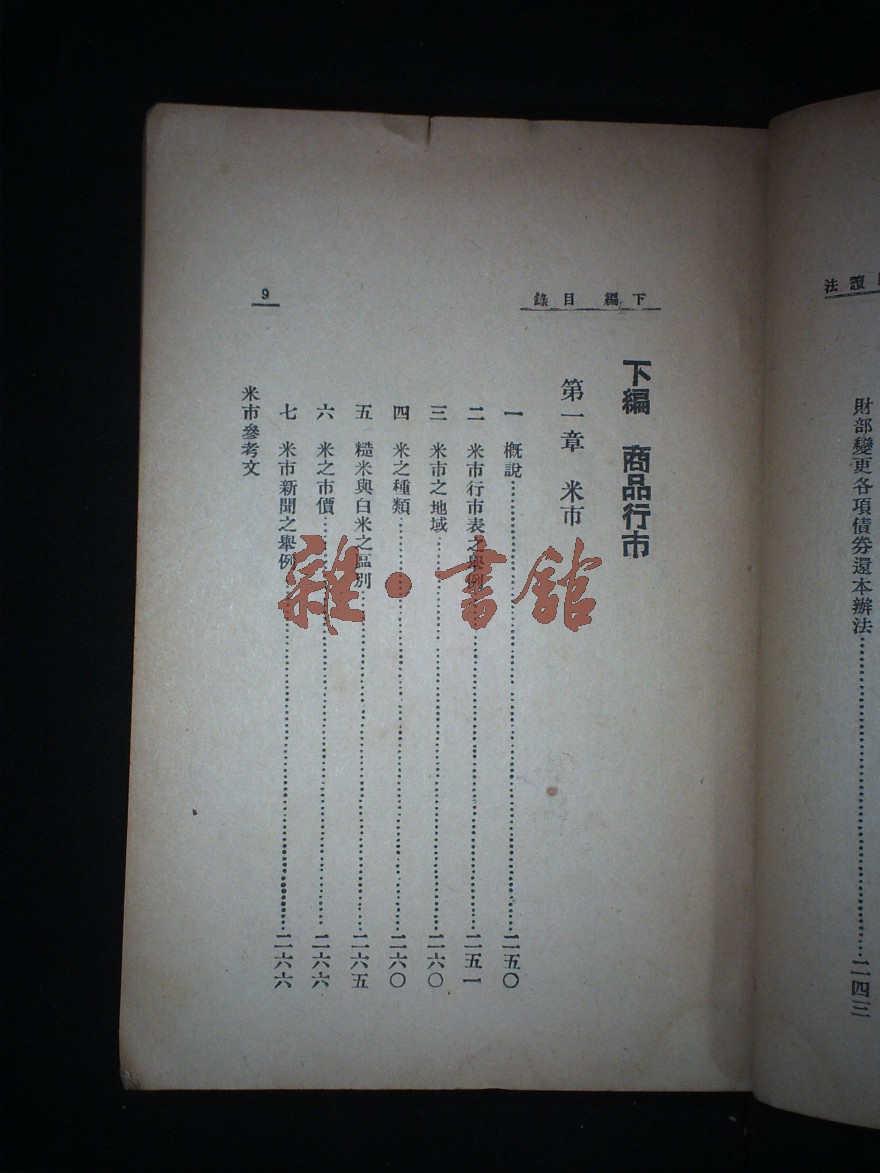 法 讀
財部變更各項債券還本辦法……二四三
錄目 編下
下編 商品行市
第一章 米市
一 概說……二五〇
二 米市行市表之舉例……二五一
三 米市之地域……二六〇
四 米之種類……二六〇
五 糙米與白米之區別……二六五
六 米之市價……二六六
七 米市新聞之舉例……二六六
米市參考文
9
雜·書館